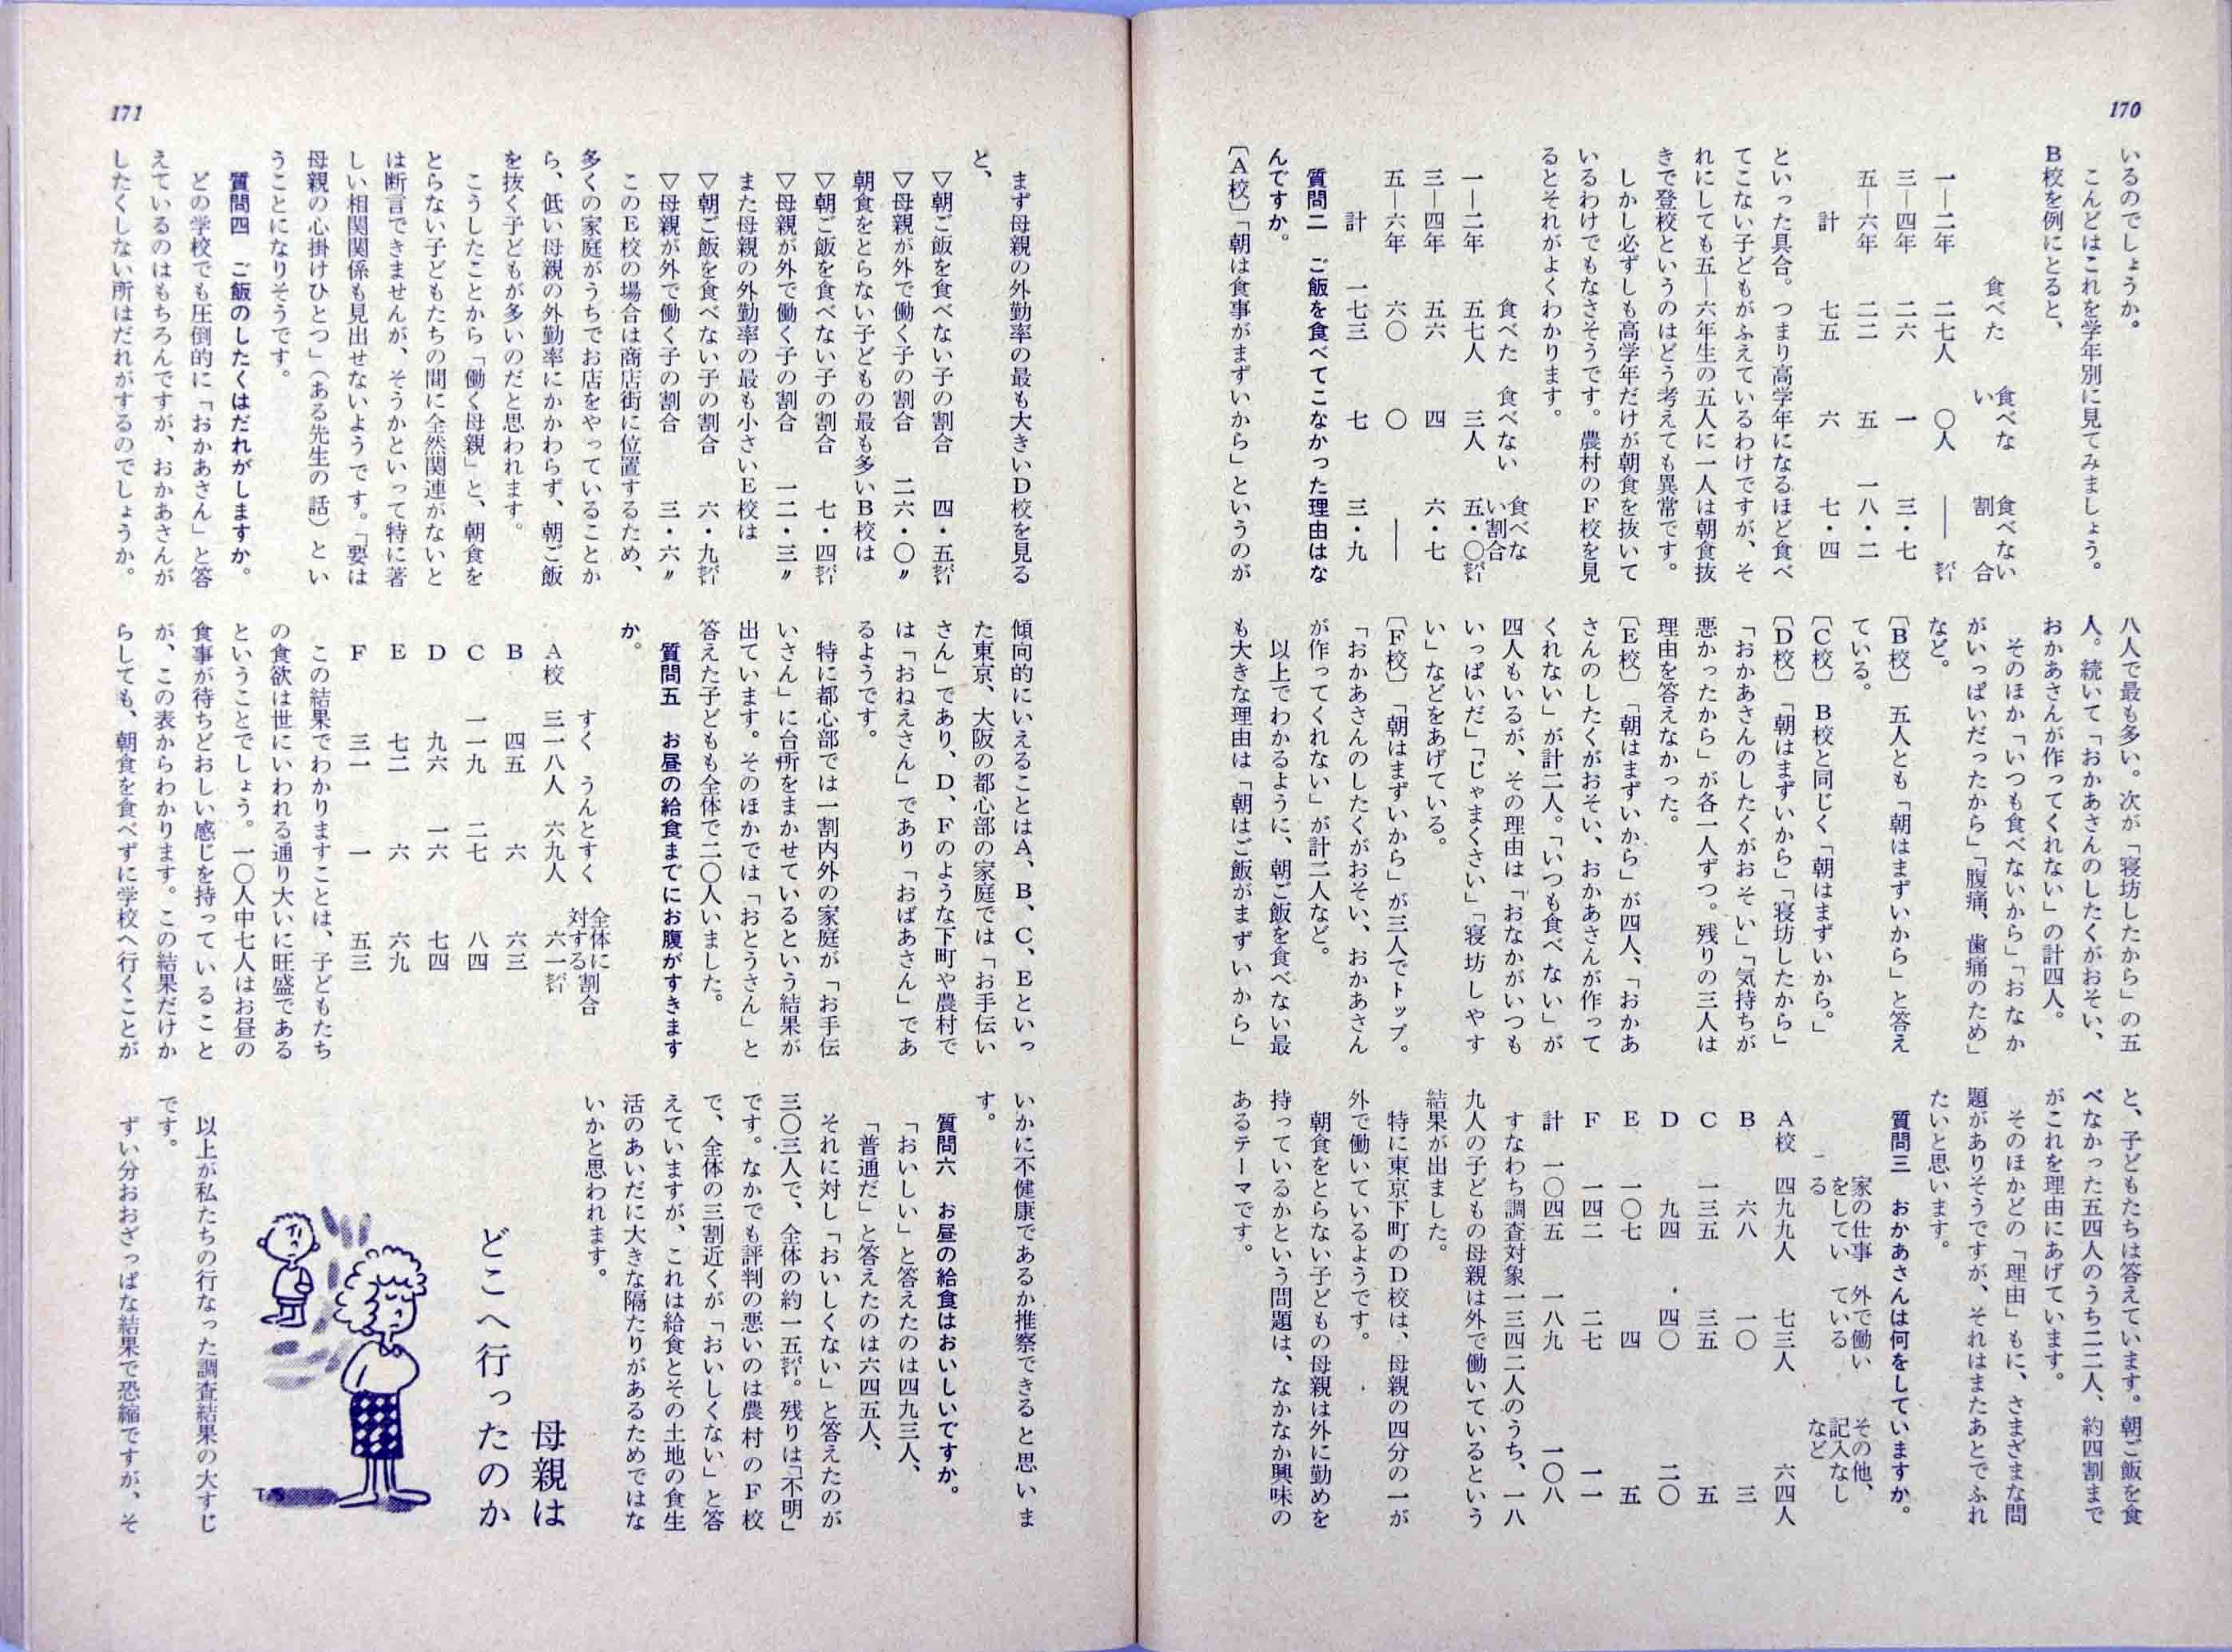 170
いるのでしょうか。
こんどはこれを学年別に見てみましょう。
B校を例にとると、
食べた　食べない　食べない割合
一―二年　二七人　〇人　――㌫
三―四年　二六　一　三・七
五―六年　二二　五　一八・二
計　七五　六　七・四
といった具合。つまり高学年になるほど食べ
てこない子どもがふえているわけですが、そ
れにしても五―六年生の五人に一人は朝食抜
きで登校というのはどう考えても異常です。
しかし必ずしも高学年だけが朝食を抜いて
いるわけでもなさそうです。農村のF校を見
るとそれがよくわかります。
食べた　食べない　食べない割合
一―二年　五七人　三人　五・〇㌫
三―四年　五六　四　六・七
五―六年　六〇　〇　――
計　一七三　七　三・九
質問二　ご飯を食べてこなかった理由はな
んですか。
〔A校〕「朝は食事がまずいから」というのが
八人で最も多い。次が「寝坊したから」の五
人。続いて「おかあさんのしたくがおそい、
おかあさんが作ってくれない」の計四人。
そのほか「いつも食べないから」「おなか
がいっぱいだったから」「腹痛、歯痛のため」
など。
〔B校〕　五人とも「朝はまずいから」と答え
ている。
〔C校〕　B校と同じく「朝はまずいから。」
〔D校〕「朝はまずいから」「寝坊したから」
「おかあさんのしたくがおそい」「気持ちが
悪かったから」が各一人ずつ。残りの三人は
理由を答えなかった。
〔E校〕「朝はまずいから」が四人、「おかあ
さんのしたくがおそい、おかあさんが作って
くれない」が計二人。「いつも食べない」が
四人もいるが、その理由は「おなかがいつも
いっぱいだ」「じゃまくさい」「寝坊しやす
い」などをあげている。
〔F校〕「朝はまずいから」が三人でトップ。
「おかあさんのしたくがおそい、おかあさん
が作ってくれない」が計二人など。
以上でわかるように、朝ご飯を食べない最
も大きな理由は「朝はご飯がまずいから」
と、子どもたちは答えています。朝ご飯を食
べなかった五四人のうち二二人、約四割まで
がこれを理由にあげています。
そのほかどの「理由」もに、さまざまな問
題がありそうですが、それはまたあとでふれ
たいと思います。
質問三　おかあさんは何をしていますか。
家の仕事をしている　外で働いている　その他、記入なしなど
A校　四九九人　七三人　六四人
B　六八　一〇　三
C　一三五　三五　五
D　九四　四〇　二〇
E　一〇七　四　五
F　一四二　二七　一一
計　一〇四五　一八九　一〇八
すなわち調査対象一三四二人のうち、一八
九人の子どもの母親は外で働いているという
結果が出ました。
特に東京下町のD校は、母親の四分の一が
外で働いているようです。
朝食をとらない子どもの母親は外に勤めを
持っているかという問題は、なかなか興味の
あるテーマです。
171
まず母親の外勤率の最も大きいD校を見る
と、
▽朝ご飯を食べない子の割合　四・五㌫
▽母親が外で働く子の割合　二六・〇〃
朝食をとらない子どもの最も多いB校は
▽朝ご飯を食べない子の割合　七・四㌫
▽母親が外で働く子の割合　一二・三〃
また母親の外勤率の最も小さいE校は
▽朝ご飯を食べない子の割合　六・九㌫
▽母親が外で働く子の割合　三・六〃
このE校の場合は商店街に位置するため、
多くの家庭がうちでお店をやっていることか
ら、低い母親の外勤率にかかわらず、朝ご飯
を抜く子どもが多いのだと思われます。
こうしたことから「働く母親」と、朝食を
とらない子どもたちの間に全然関連がないと
は断言できませんが、そうかといって特に著
しい相関関係も見出せないようです。「要は
母親の心掛けひとつ」（ある先生の話）とい
うことになりそうです。
質問四　ご飯のしたくはだれがしますか。
どの学校でも圧倒的に「おかあさん」と答
えているのはもちろんですが、おかあさんが
したくしない所はだれがするのでしょうか。
傾向的にいえることはA、B、C、Eといっ
た東京、大阪の都心部の家庭では「お手伝い
さん」であり、D、Fのような下町や農村で
は「おねえさん」であり「おばあさん」であ
るようです。
特に都心部では一割内外の家庭が「お手伝
いさん」に台所をまかせているという結果が
出ています。そのほかでは「おとうさん」と
答えた子どもも全体で二〇人いました。
質問五　お昼の給食までにお腹がすきます
か。
すく　うんとすく　全体に対する割合
A校　三一八人　六九人　六一㌫
B　四五　六　六三
C　一一九　二七　八四
D　九六　一六　七四
E　七二　六　六九
F　三一　一　五三
この結果でわかりますことは、子どもたち
の食欲は世にいわれる通り大いに旺盛である
ということでしょう。一〇人中七人はお昼の
食事が待ちどおしい感じを持っていること
が、この表からわかります。この結果だけか
らしても、朝食を食べずに学校へ行くことが
いかに不健康であるか推察できると思いま
す。
質問六　お昼の給食はおいしいですか。
「おいしい」と答えたのは四九三人、
「普通だ」と答えたのは六四五人、
それに対し「おいしくない」と答えたのが
三〇三人で、全体の約一五㌫。残りは「不明」
です。なかでも評判の悪いのは農村のF校
で、全体の三割近くが「おいしくない」と答
えていますが、これは給食とその土地の食生
活のあいだに大きな隔たりがあるためではな
いかと思われます。
母親は
どこへ行ったのか
以上が私たちの行なった調査結果の大すじ
です。
ずい分おおざっぱな結果で恐縮ですが、そ